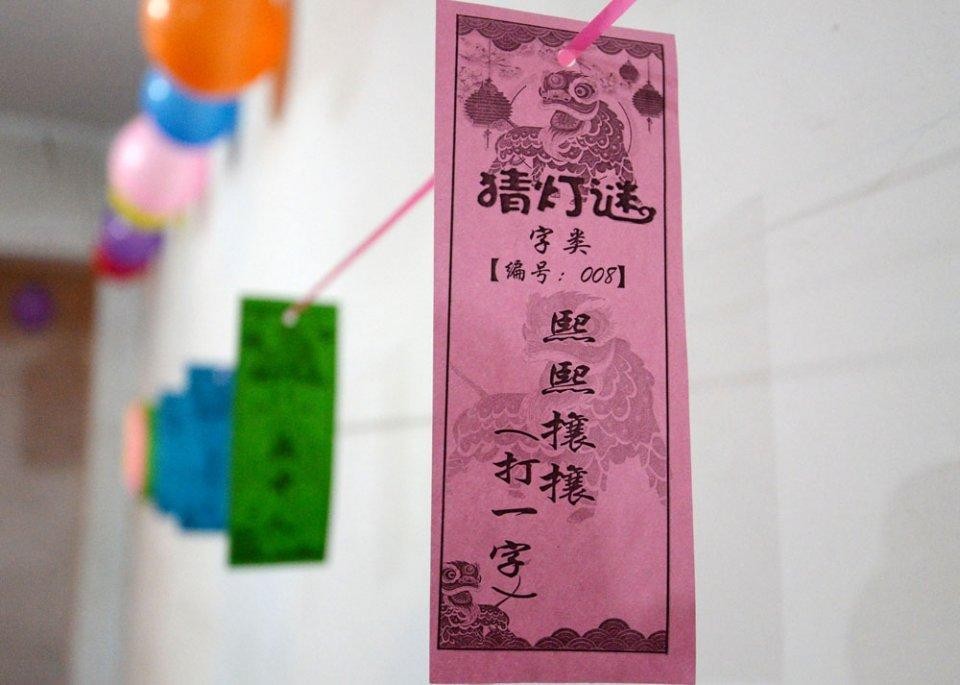 猜灯谜
字类
【编号：008】
熙熙攘攘
（打一字）